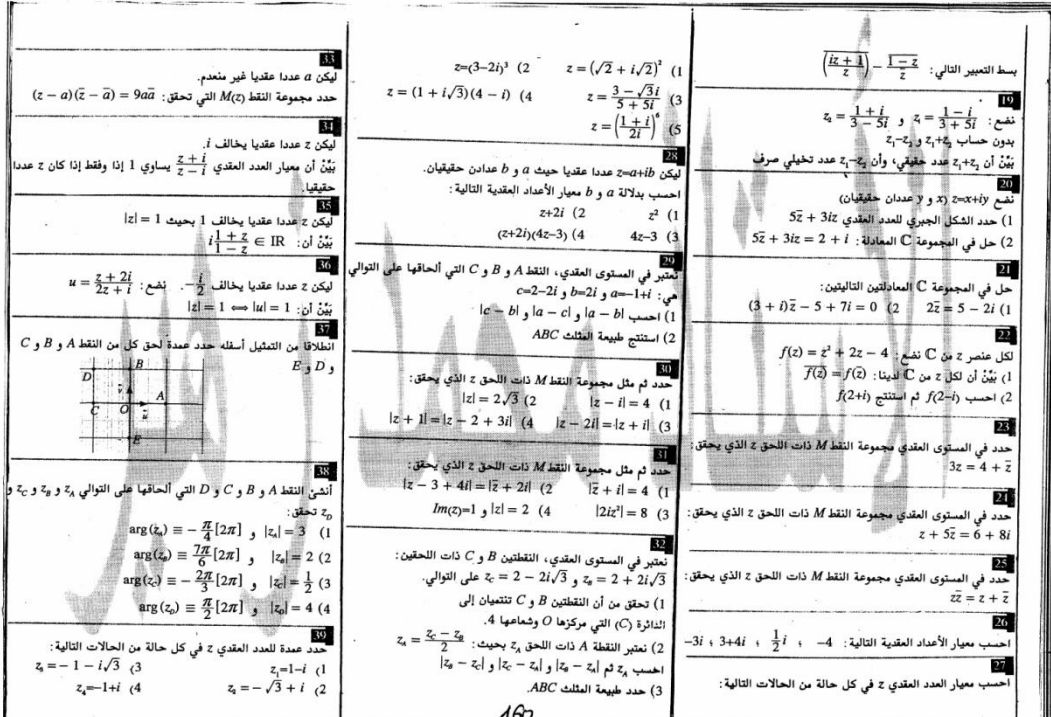 بسط التعبير التالي: $\overline{\left(\frac{iz+1}{z}\right)} - \frac{\overline{1-z}}{\overline{z}}$
19
نضع: $z_1 = \frac{1-i}{3+5i}$ و $z_2 = \frac{1+i}{3-5i}$
بدون حساب $z_1+z_2$ و $z_1-z_2$
بَيِّنْ أن $z_1+z_2$ عدد حقيقي، وأن $z_1-z_2$ عدد تخيلي صرف
20
نضع $z=x+iy$ ($x$ و $y$ عددان حقيقيان)
1) حدد الشكل الجبري للعدد العقدي $5\overline{z}+3iz$
2) حل في المجموعة ℂ المعادلة: $5\overline{z}+3iz=2+i$
21
حل في المجموعة ℂ المعادلتين التاليتين:
1) $2\overline{z}=5-2i$ 2) $(3+i)\overline{z}-5+7i=0$
22
لكل عنصر $z$ من ℂ نضع: $f(z)=z^2+2z-4$
1) بَيِّنْ أن لكل $z$ من ℂ لدينا: $\overline{f(z)}=f(\overline{z})$
2) احسب $f(2-i)$ ثم استنتج $f(2+i)$
23
حدد في المستوى العقدي مجموعة النقط $M$ ذات اللحق $z$ الذي يحقق:
$3z=4+\overline{z}$
24
حدد في المستوى العقدي مجموعة النقط $M$ ذات اللحق $z$ الذي يحقق:
$z+5\overline{z}=6+8i$
25
حدد في المستوى العقدي مجموعة النقط $M$ ذات اللحق $z$ الذي يحقق:
$z\overline{z}=z+\overline{z}$
26
احسب معيار الأعداد العقدية التالية: $-4$ ، $\frac{1}{2}i$ ، $3+4i$ ، $-3i$
27
احسب معيار العدد العقدي $z$ في كل حالة من الحالات التالية:
1) $z=(\sqrt{2}+i\sqrt{2})^2$ 2) $z=(3-2i)^3$
3) $z=\frac{3-\sqrt{3}i}{5+5i}$ 4) $z=(1+i\sqrt{3})(4-i)$
5) $z=\left(\frac{1+i}{2i}\right)^6$
28
ليكن $z=a+ib$ عددا عقديا حيث $a$ و $b$ عدادن حقيقيان.
احسب بدلالة $a$ و $b$ معيار الأعداد العقدية التالية:
1) $z^2$ 2) $z+2i$
3) $4z-3$ 4) $(z+2i)(4z-3)$
29
نعتبر في المستوى العقدي، النقط $A$ و $B$ و $C$ التي ألحاقها على التوالي
هي: $a=-1+i$ و $b=2i$ و $c=2-2i$
1) احسب $|a-b|$ و $|a-c|$ و $|c-b|$
2) استنتج طبيعة المثلث $ABC$
30
حدد ثم مثل مجموعة النقط $M$ ذات اللحق $z$ الذي يحقق:
1) $|z-i|=4$ 2) $|z|=2\sqrt{3}$
3) $|z-2i|=|z+i|$ 4) $|z+1|=|z-2+3i|$
31
حدد ثم مثل مجموعة النقط $M$ ذات اللحق $z$ الذي يحقق:
1) $|\overline{z}+i|=4$ 2) $|z-3+4i|=|\overline{z}+2i|$
3) $|2iz^2|=8$ 4) $|z|=2$ و $Im(z)=1$
32
نعتبر في المستوى العقدي، النقطتين $B$ و $C$ ذات اللحقين:
$z_B=2+2i\sqrt{3}$ و $z_C=2-2i\sqrt{3}$ على التوالي.
1) تحقق من أن النقطتين $B$ و $C$ تنتميان إلى
الدائرة $(C)$ التي مركزها $O$ وشعاعها 4.
2) نعتبر النقطة $A$ ذات اللحق $z_A$ بحيث: $z_A=\frac{z_C-z_B}{2}$
احسب $z_A$ ثم $|z_B-z_A|$ و $|z_C-z_A|$ و $|z_B-z_C|$
3) حدد طبيعة المثلث $ABC$.
33
ليكن $a$ عددا عقديا غير منعدم.
حدد مجموعة النقط $M(z)$ التي تحقق: $(z-a)(\overline{z}-\overline{a})=9a\overline{a}$
34
ليكن $z$ عددا عقديا يخالف $i$.
بَيِّنْ أن معيار العدد العقدي $\frac{z+i}{z-i}$ يساوي 1 إذا وفقط إذا كان $z$ عددا
حقيقيا.
35
ليكن $z$ عددا عقديا يخالف 1 بحيث $|z|=1$
بَيِّنْ أن: $i\frac{1+z}{1-z} \in IR$
36
ليكن $z$ عددا عقديا يخالف $-\frac{i}{2}$. نضع: $u=\frac{z+2i}{2z+i}$
بَيِّنْ أن: $|z|=1 \Longleftrightarrow |u|=1$
37
انطلاقا من التمثيل أسفله حدد عمدة لحق كل من النقط $A$ و $B$ و $C$
و $D$ و $E$
D B
v
C O u A
E
38
أنشئ النقط $A$ و $B$ و $C$ و $D$ التي ألحاقها على التوالي $z_A$ و $z_B$ و $z_C$ و
$z_D$ تحقق:
1) $|z_A|=3$ و $\arg(z_A)\equiv-\frac{\pi}{4}[2\pi]$
2) $|z_B|=2$ و $\arg(z_B)\equiv\frac{7\pi}{6}[2\pi]$
3) $|z_C|=\frac{1}{2}$ و $\arg(z_C)\equiv-\frac{2\pi}{3}[2\pi]$
4) $|z_D|=4$ و $\arg(z_D)\equiv\frac{\pi}{2}[2\pi]$
39
حدد عمدة للعدد العقدي $z$ في كل حالة من الحالات التالية:
1) $z_1=1-i$ 3) $z_3=-1-i\sqrt{3}$
2) $z_2=-\sqrt{3}+i$ 4) $z_4=-1+i$